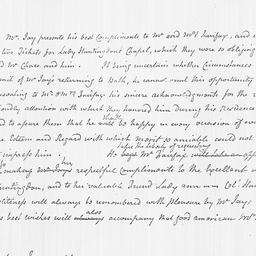 Mr. Jay presents his best Compliments to Mr. and Mrs. Fairfax, and
two Tickets for Lady Huntingdons Chapel, which they were so obliging
Mr. Chace and him. It being uncertain whether Circumstances
of Mr. Jay's returning to Bath, he cannot omit this opportunity
to Mr. & Mrs. Fairfax his sincere acknowledgments for the
attention with which they honored him during his Residence
and to assure them that he will be happy in every occasion of
the Esteem and Regard with which merit so amiable could not
impress him. He
takes the liberty of requesting
Mr. Fairfax
making his respectful Compliments to the Excellent
Huntingdon, and to her valuable Friend Lady Ann
politeness will always be remembered with Pleasure by Mr. Jay,
best wishes will also accompany that good american Mr.